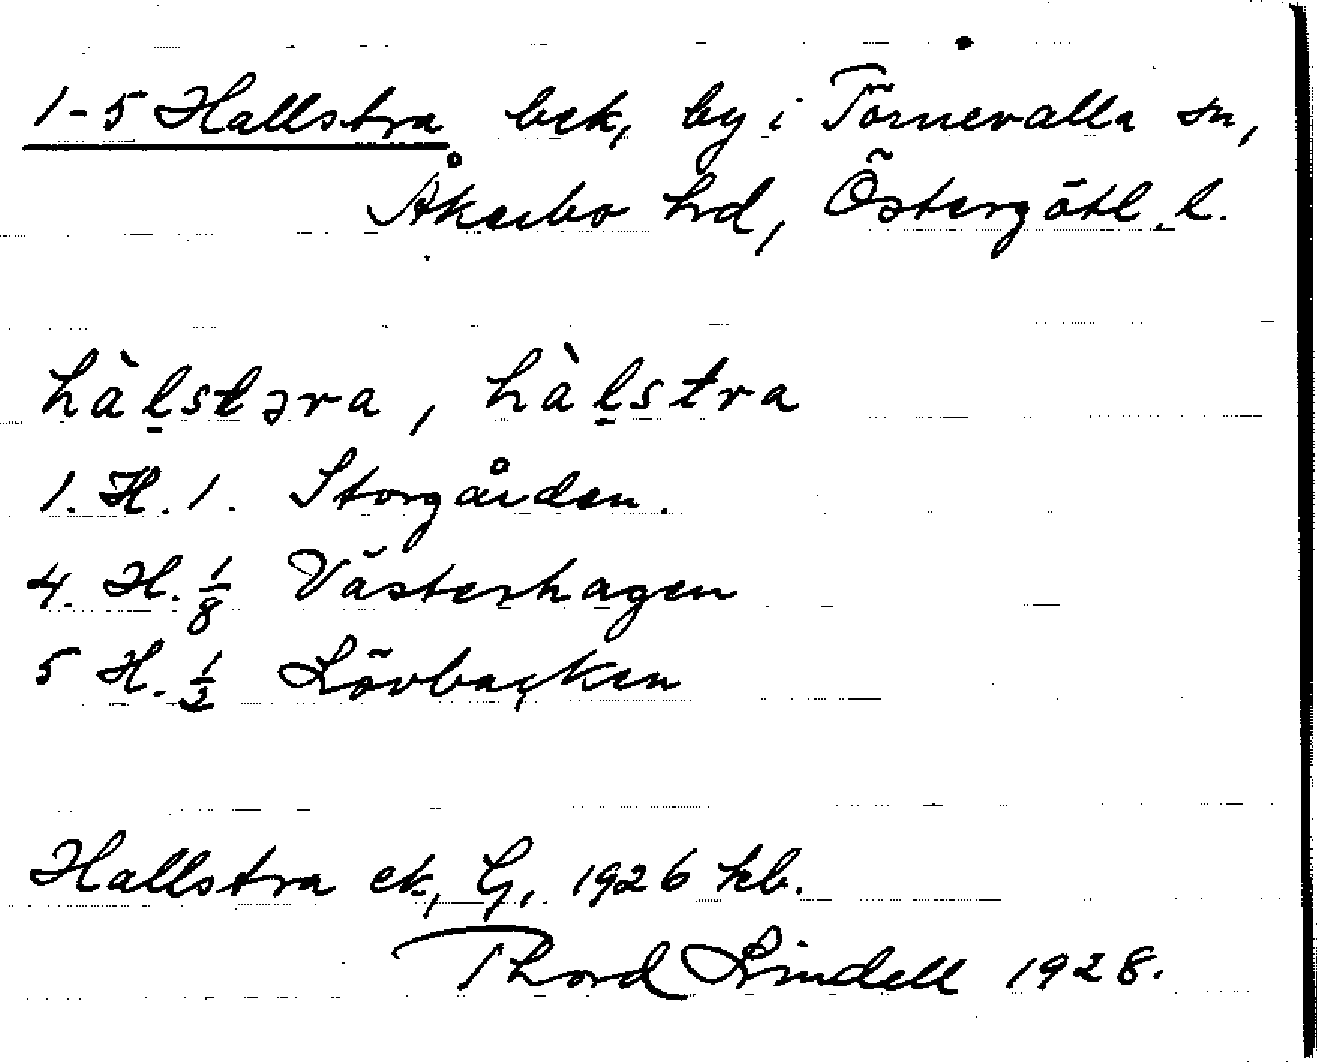 1-5 Hallstra bek, by i Törnevalla sn,
Åkerbo hrd, Östergötl. l.
hàl̠stəra, hàl̠stra
1. H. 1. Storgården.
4. H. 1/8 Västerhagen
5 H. 1/2 Lövbacken
Hallstra ek, G, 1926 kb.
Thord Lindell 1928.